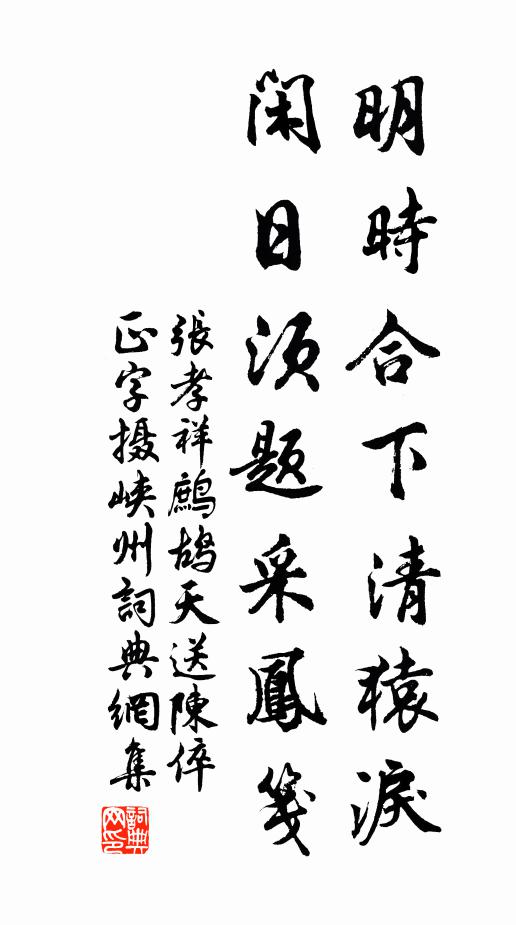 明時合下清猿淚
閑日須題采鳳箋
張孝祥鷓鴣天送陳倅
正字摄峽州詞典網集
詞典网印